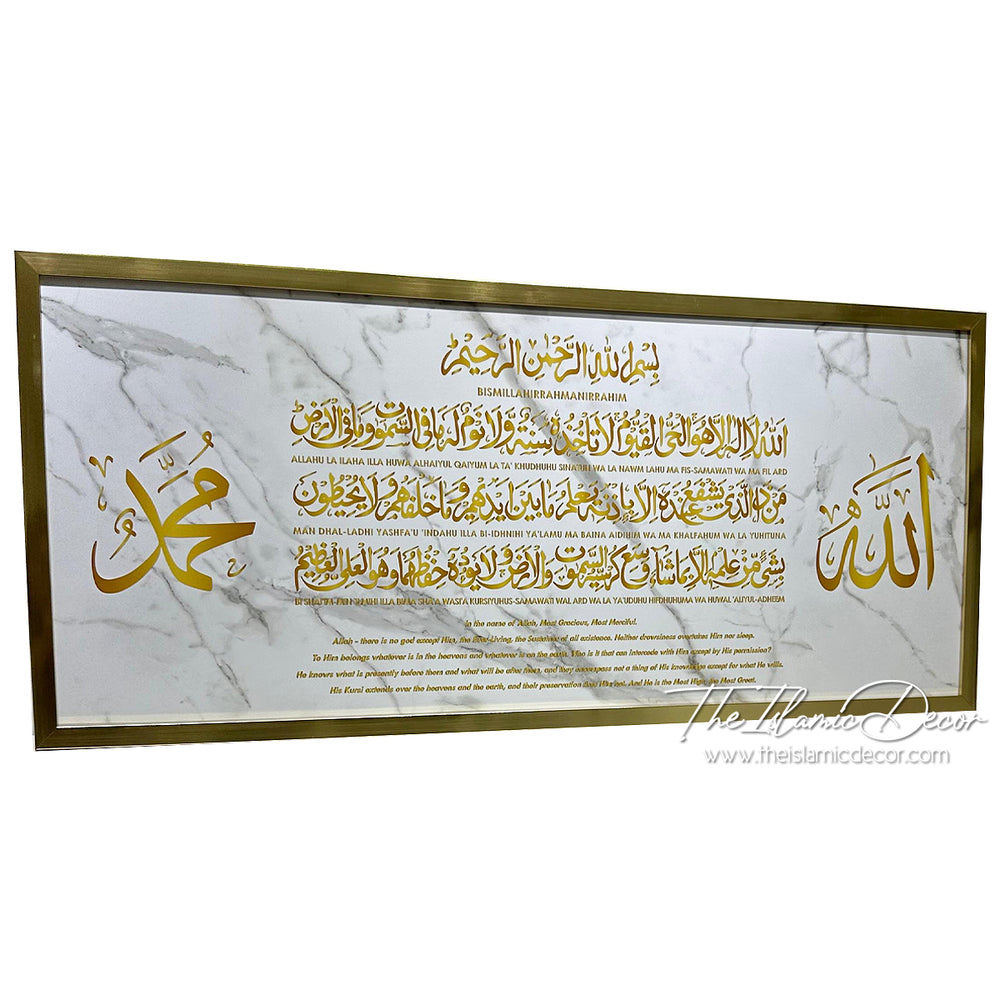 بسم الله الرحمن الرحيم
BISMILLAHIRRAHMANIRRAHIM
الله لا اله الا هو الحي القيوم لا تاخذه سنة ولا نوم له ما في السموت وما في الارض
ALLAHU LA ILAHA ILLA HUWA ALHAIYUL QAIYUM LA TA' KHUDHUHU SINATUH WA LA NAWM LAHU MA FIS-SAMAWATI WA MA FIL ARD
من ذا الذي يشفع عنده الا باذنه يعلم ما بين ايديهم وما خلفهم ولا يحيطون
MAN DHAL-LADHI YASHFA'U 'INDAHU ILLA BI-IDHNIHI YA'LAMU MA BAINA AIDIHIM WA MA KHALFAHUM WA LA YUHITUNA
بشيء من علمه الا بما شاء وسع كرسيه السموت والارض ولا يوده حفظهما وهو العلي العظيم
BI SHAI'IM-MIN 'ILMIHI ILLA BIMA SHA'A WASI'A KURSIYUHUS-SAMAWATI WAL ARD WA LA YA'UDUHU HIFDHUHUMA WA HUWAL 'ALIYUL-ADHEEM
In the name of Allah, Most Gracious, Most Merciful.
Allah - there is no god except Him, the Ever-Living, the Sustainer of all existence. Neither drowsiness overtakes Him nor sleep.
To Him belongs whatever is in the heavens and whatever is on the earth. Who is it that can intercede with Him except by His permission?
He knows what is presently before them and what will be after them, and they encompass not a thing of His knowledge except for what He wills.
His Kursi extends over the heavens and the earth, and their preservation tires Him not. And He is the Most High, the Most Great.
الله
محمد
The Islamic Decor
www.theislamicdecor.com